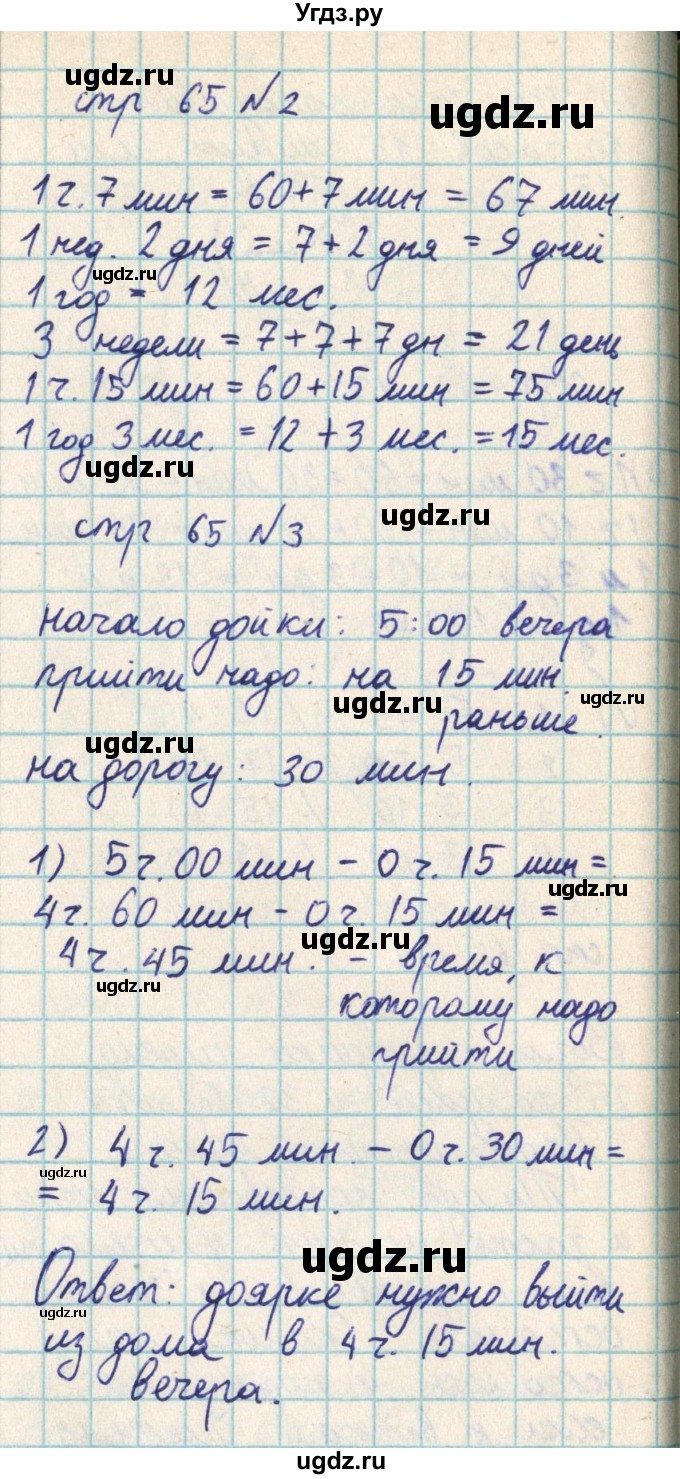 Угдз.ру
ugdz.ru
стр 65 №2
ugdz.ru
1 ч. 7 мин = 60+7 мин = 67 мин.
1 нед. 2 дня = 7+2 дня = 9 дней
ugdz.ru
1 год = 12 мес.
3 недели = 7+7+7 дн = 21 день
1 ч. 15 мин = 60+15 мин = 75 мин
1 год 3 мес. = 12 + 3 мес. = 15 мес.
ugdz.ru
ugdz.ru
стр 65 №3
начало дойки: 5:00 вечера
прийти надо: на 15 мин.
ugdz.ru
ugdz.ru
раньше.
ugdz.ru
на дорогу: 30 мин.
1) 5 ч. 00 мин - 0 ч. 15 мин =
ugdz.ru
4 ч. 60 мин - 0 ч. 15 мин =
ugdz.ru
4 ч. 45 мин. - время, к
ugdz.ru
которому надо
прийти
2) 4 ч. 45 мин. - 0 ч. 30 мин =
ugdz.ru
= 4 ч. 15 мин.
ugdz.ru
Ответ: доярке нужно выйти
ugdz.ru
из дома в 4 ч. 15 мин.
вечера.
ugdz.ru